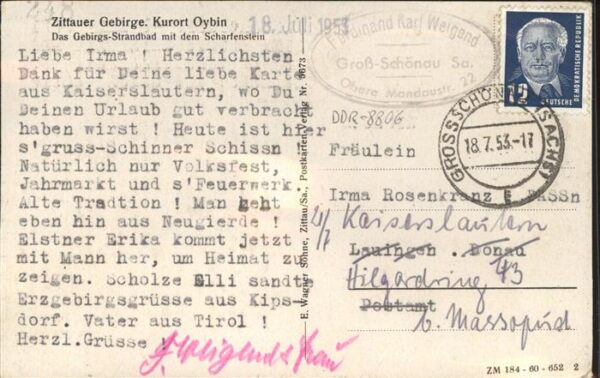 248
Zittauer Gebirge. Kurort Oybin
Das Gebirgs-Strandbad mit dem Scharfenstein
18. Juli 1953
Liebe Irma ! Herzlichsten
Dank für Deine liebe Karte
aus Kaiserslautern, wo Du
Deinen Urlaub gut verbracht
haben wirst ! Heute ist hier
s'gruss-Schinner Schissn !
Natürlich nur Volksfest,
Jahrmarkt und s'Feuerwerk.
Alte Tradtion ! Man geht
eben hin aus Neugierde !
Elstner Erika kommt jetzt
mit Mann her, um Heimat zu
zeigen. Scholze Elli sandte
Erzgebirgsgrüsse aus Kips-
dorf. Vater aus Tirol !
Herzl.Grüsse !
F. Weigend & Frau
E. Wagner Söhne, Zittau/Sa., Postkarten-Verlag Nr. 9673
Ferdinand Karl Weigend
Groß-Schönau Sa.
Obere Mandaustr. 22
DDR-8806
12
DEUTSCHE DEMOKRATISCHE REPUBLIK
GROSSSCHÖNAU (SACHS)
18.7.53.-17
E
Fräulein
Irma Rosenkranz
21/7
Kaiserslautern
Lauingen Donau
Hilgardring 43
Postamt
b. Massopust
ZM 184 - 60 - 652 2